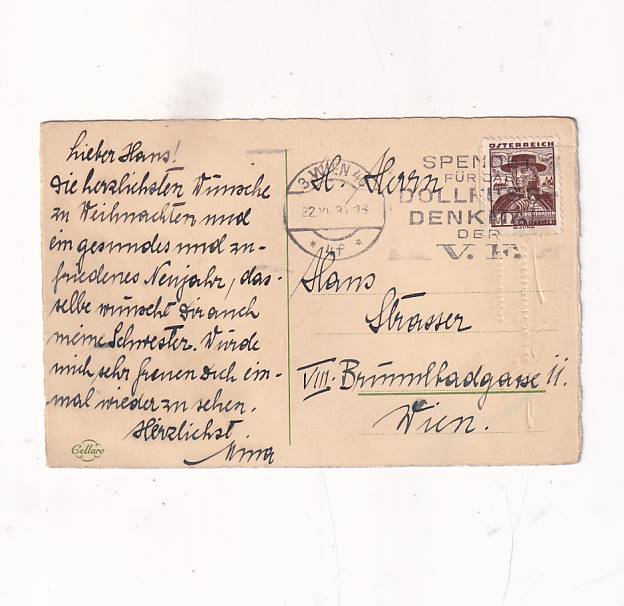 Lieber Hans!
Die herzlichsten Wünsche
zu Weihnachten und
ein gesundes und zu-
friedenes Neujahr, das-
selbe wünscht Dir auch
meine Schwester. Würde
mich sehr freuen Dich ein-
mal wieder zu sehen.
Herzlichst
Mina
Cellaro
3 WIEN
22
SPEN
FÜR DA
DOLLF
DENK
DER
V. F.
ÖSTERREICH
H. Herrn
Hans
Strasser
VIII. Brummlbadgasse 11.
Wien.